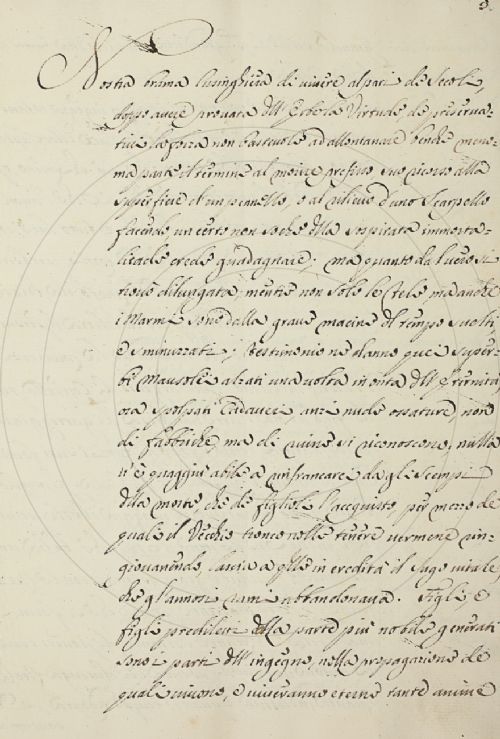 3.
Nostra brama lusinghiera di vivere al pari de Secoli,
doppo avere provata dll' Erbe la Virtude de preserva-
tivi la forza non bastevole ad allontanare benche meno-
ma parte il termine al morire prefisso suo ricorso alla
superficie d'un pianello, o al rilievo d'uno Scarpello
facendo un certo non so che dlla sospirata immorta-
litade crede guadagnare; ma quanto dal vero si
trova dilungata, mentre non solo le Tele ma anche
i Marmi sono dalla grave macine dl tempo svolti,
e sminuzzati; testimonio ne danno quei super-
bi Mausolei alzati una volta in onta dll' Eternità
ora spolpati Cadaveri, anzi nude ossature non
di fabbriche, ma di ruine si riconoscono, nulla
v'è quaggiù abile a rinfrancarci da gli Scempi
dlla morte, che de figlioli l'acquisto per mezzo de
quali il Vecchio tronco nelle tenere vermene rin-
giovanendo, lascia a qlle in eredità il sugo vitale
che gl'annosi rami abbandonava. Figli e
figli prediletti dlla parte più nobile generati
sono i parti dll' ingegno, nella propagazione de
quali vivono, e viveranno eterne tante anime